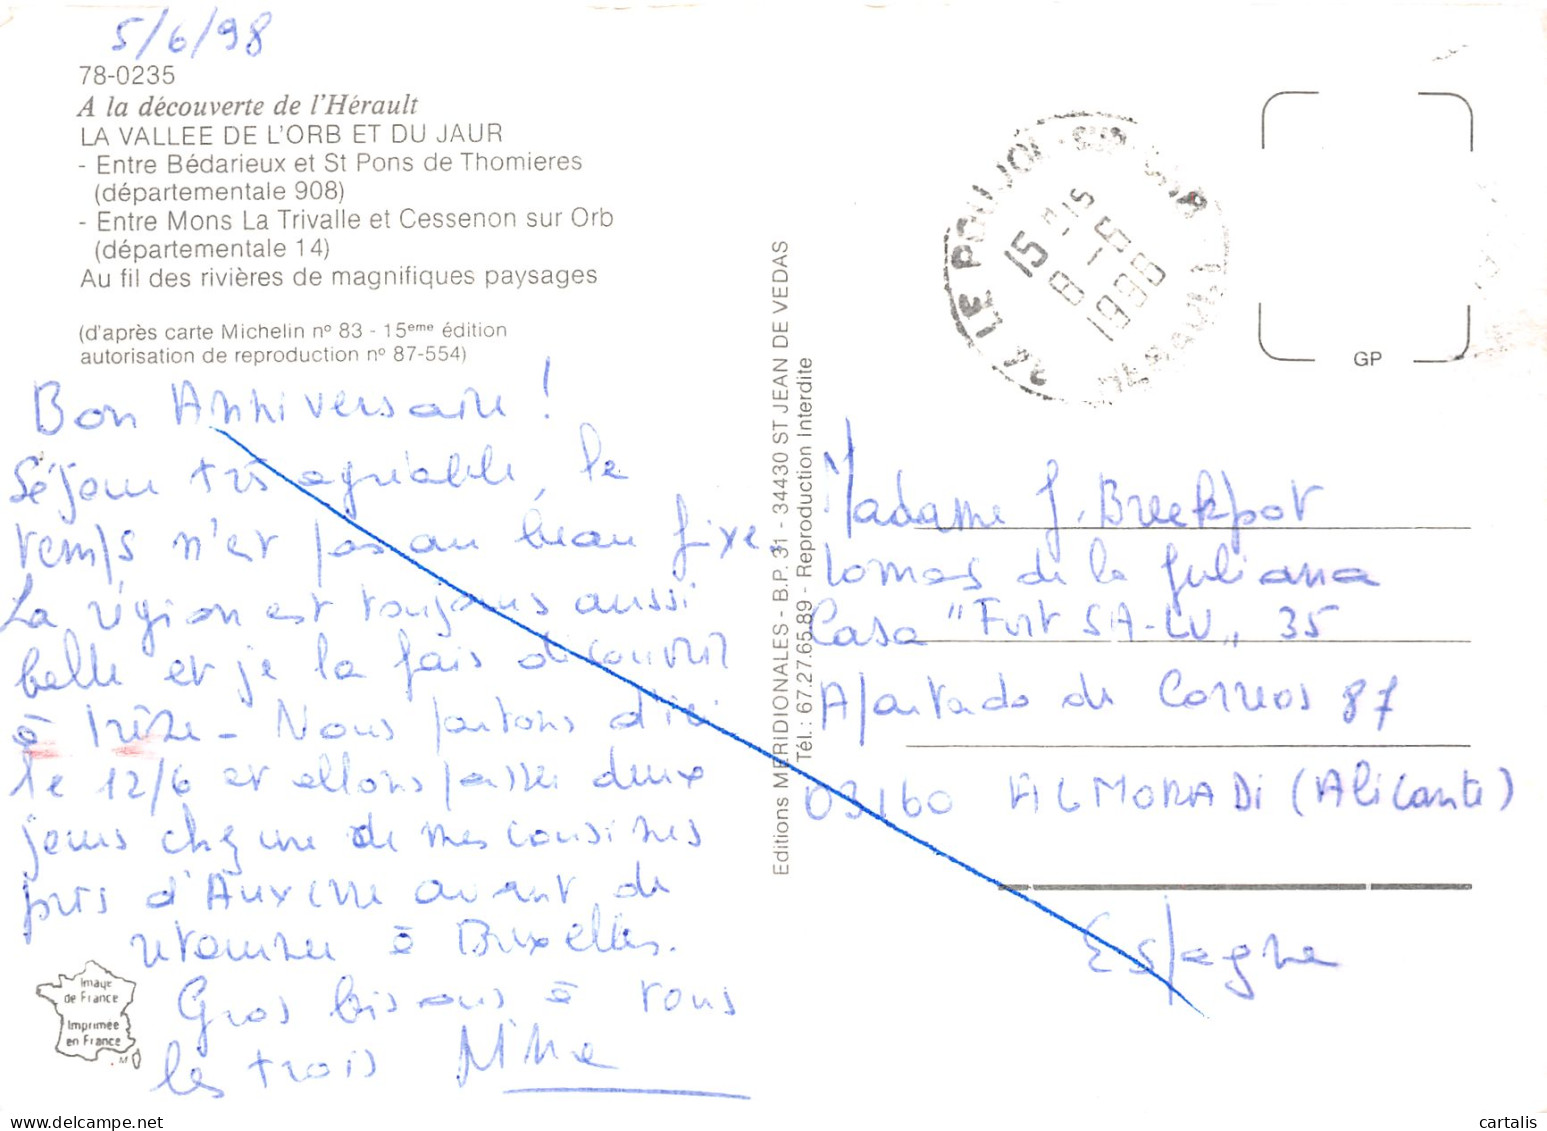 5/6/98
78-0235
A la découverte de l'Hérault
LA VALLEE DE L'ORB ET DU JAUR
- Entre Bédarieux et St Pons de Thomieres
(départementale 908)
- Entre Mons La Trivalle et Cessenon sur Orb
(départementale 14)
Au fil des rivières de magnifiques paysages
(d'après carte Michelin nº 83 - 15eme édition
autorisation de reproduction nº 87-554)
Bon Anniversaire !
Séjour très agréable, le
temps n'est pas au beau fixe.
La région est toujours aussi
belle et je la fais découvrir
à
Nous partons d'ici
le 12/6 et allons passer deux
jours chez une de mes cousines
près d'Auxerre avant de
retourner à Bruxelles.
Gros bisous à vous
les trois
Image
de France
Imprimée
en France
Editions MERIDIONALES - B.P. 31 - 34430 ST JEAN DE VEDAS
Tél.: 67.27.65.89 - Reproduction Interdite
LE POUJOL SUR ORB
15 H 15
8 -6
1998
GP
Madame J. Breekpot
Lomas de la Juliana
Casa "Fort SA-LU" 35
Apartado de Correos 87
03160 ALMORADi (Alicante)
Espagne
cartalis
delcampe.net